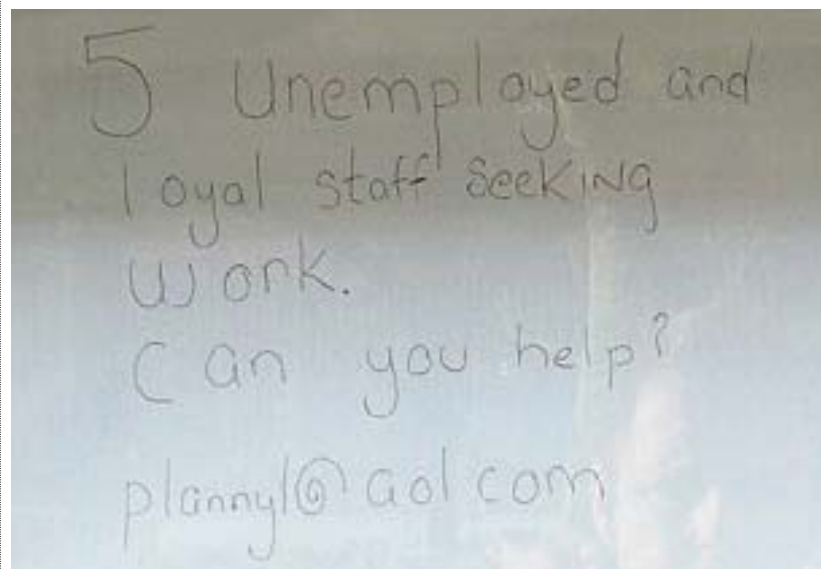 5 Unemployed and
loyal staff seeking
Work.
Can you help?
plannyl@aol com